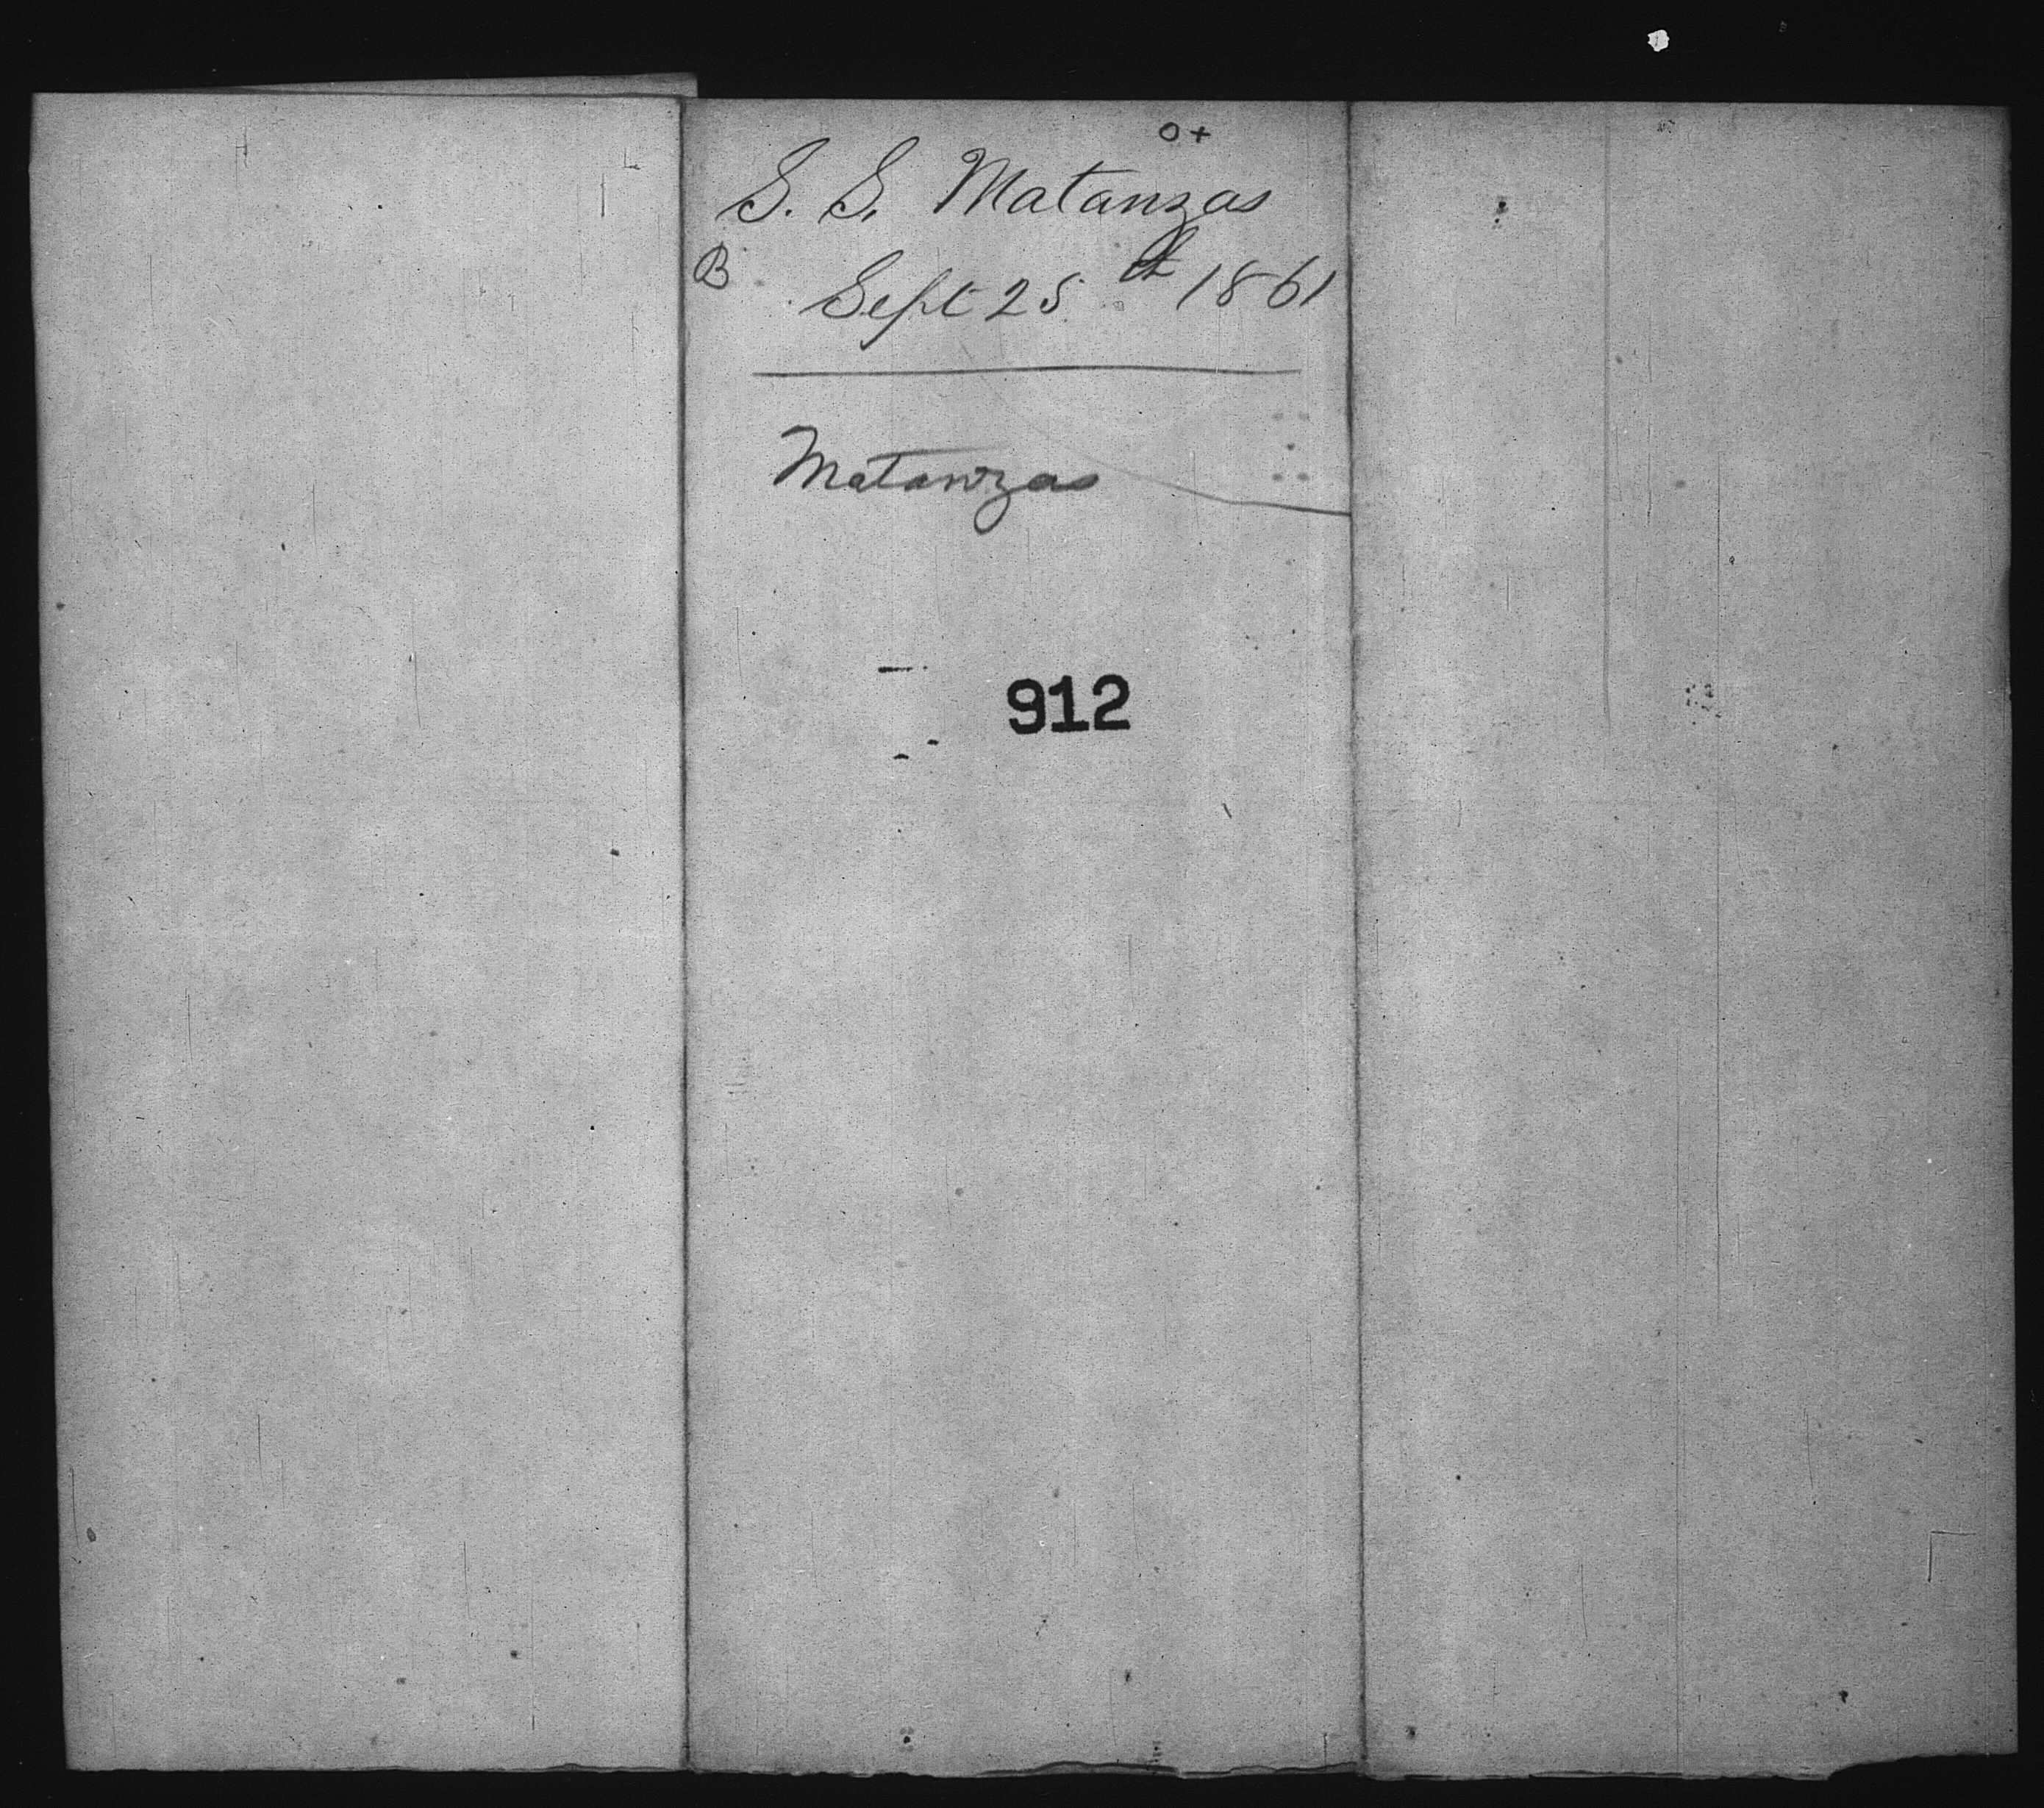 o+
S. S. Matanzas
B
Sept 25th 1861
Matanzas
912